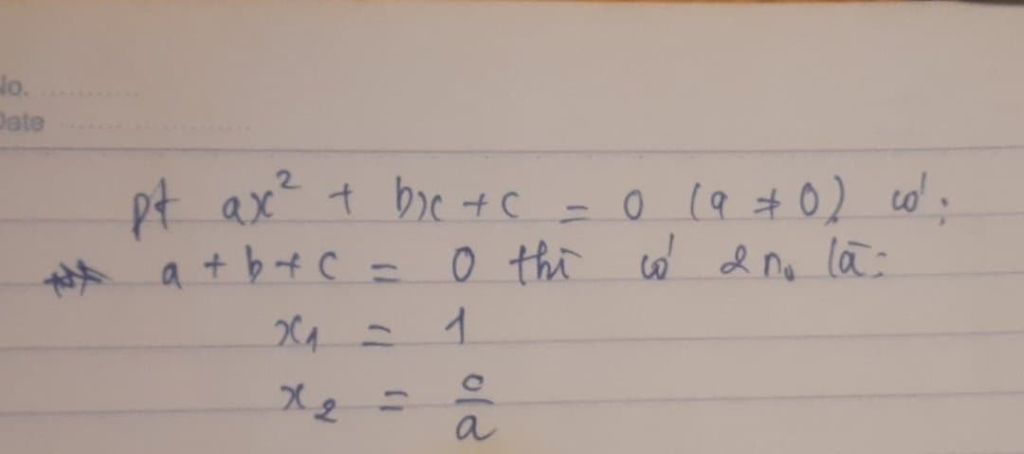 No. ............
Date ......................
pt ax² + bx + c = 0 (a ≠ 0) có:
a + b + c = 0 thì có 2 n₀ là:
x₁ = 1
x₂ = c/a